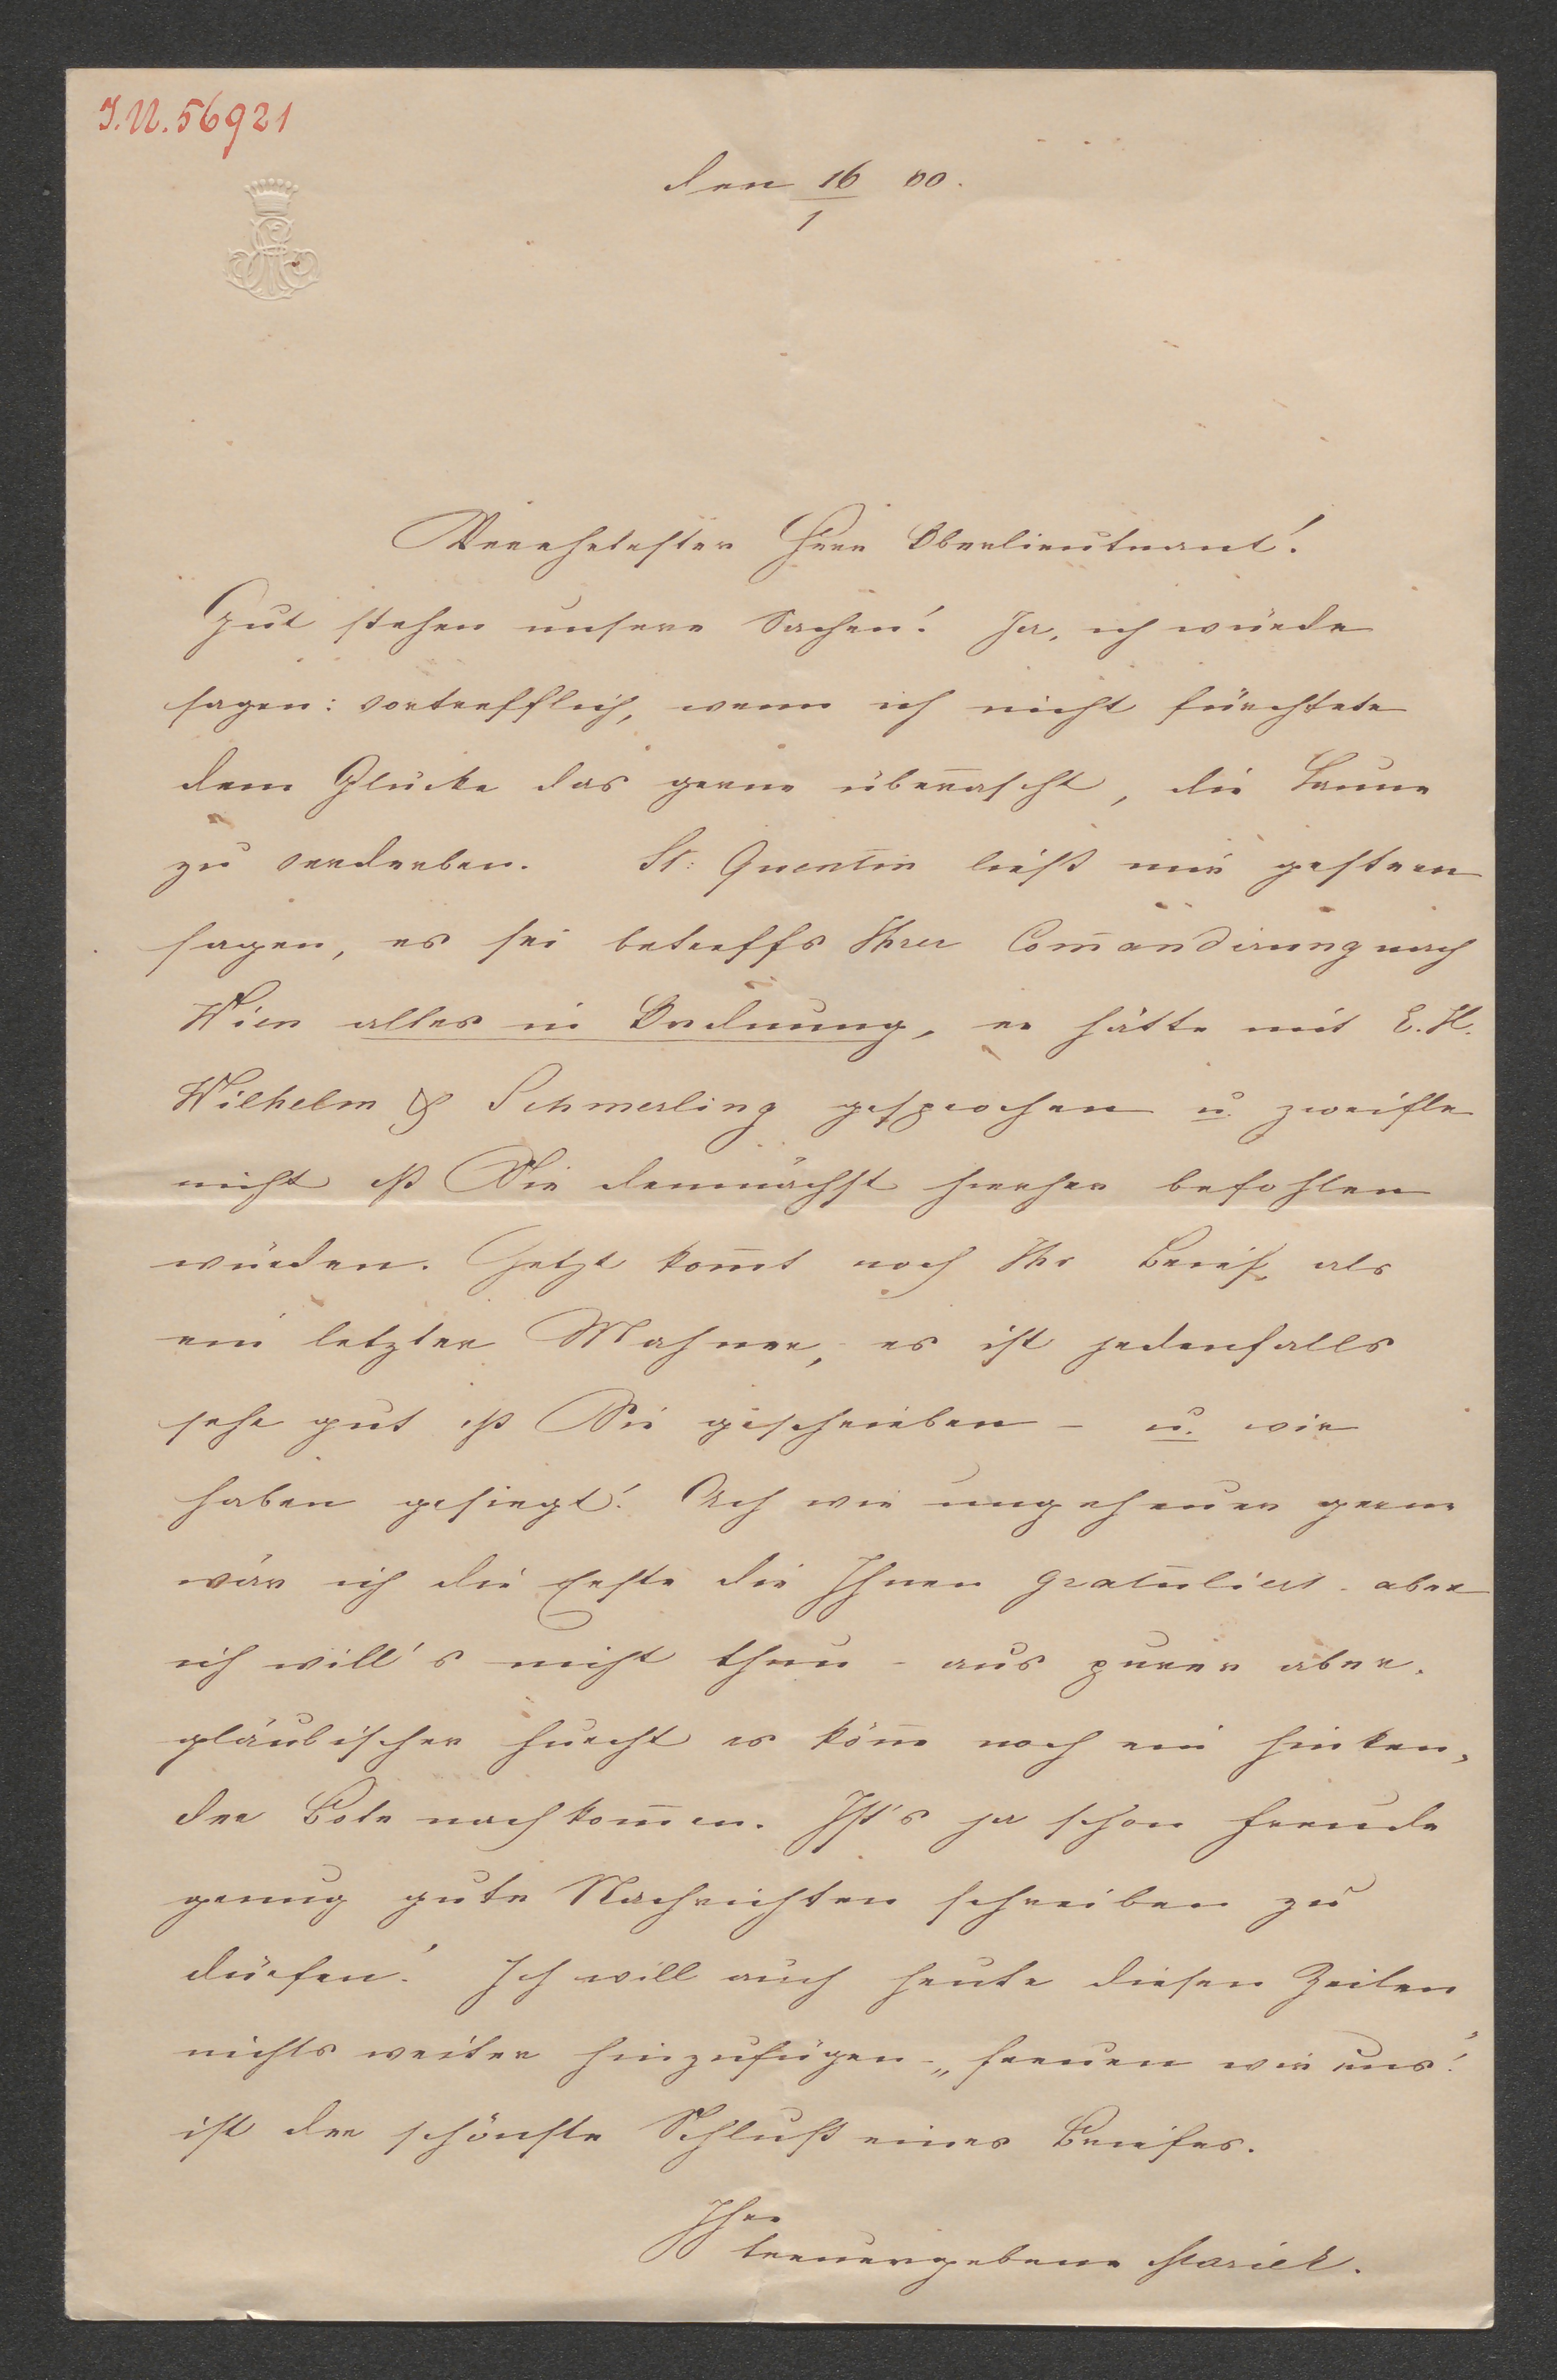 I.N. 56921
den 16/1 60.
Verehrtester Herr Oberlieutnant!
Gut stehen unsere Sachen! Ja, ich würde
sagen: vortrefflich, wenn ich nicht fürchtete
dem Glücke das gerne überrascht, die Laune
zu verderben. St: Quentin ließ mir gestern
sagen, es sei betreffs Ihrer Com̄andirung nach
Wien alles in Ordnung, er hätte mit E. H.
Wilhelm & Schmerling gesprochen u. zweifle
nicht dß Sie demnächst hierher befohlen
würden. Jetzt kom̄t noch Ihr Brief, als
ein letzter Mahner, es ist jedenfalls
sehr gut dß Sie geschrieben – u. wir
haben gesiegt! Ach wie ungeheuer gerne
wär ich die Erste die Ihnen gratuliert – aber
ich will's nicht thun – aus purer aber-
gläubischer Furcht es kön̄e noch ein hinken-
der Bote nachkom̄en. Ist's ja schon Freude
genug gute Nachrichten schreiben zu
dürfen! Ich will auch heute diesen Zeilen
nichts weiter hinzufügen – „freuen wir uns!"
ist der schönste Schluß eines Briefes.
Ihre
treuergebene